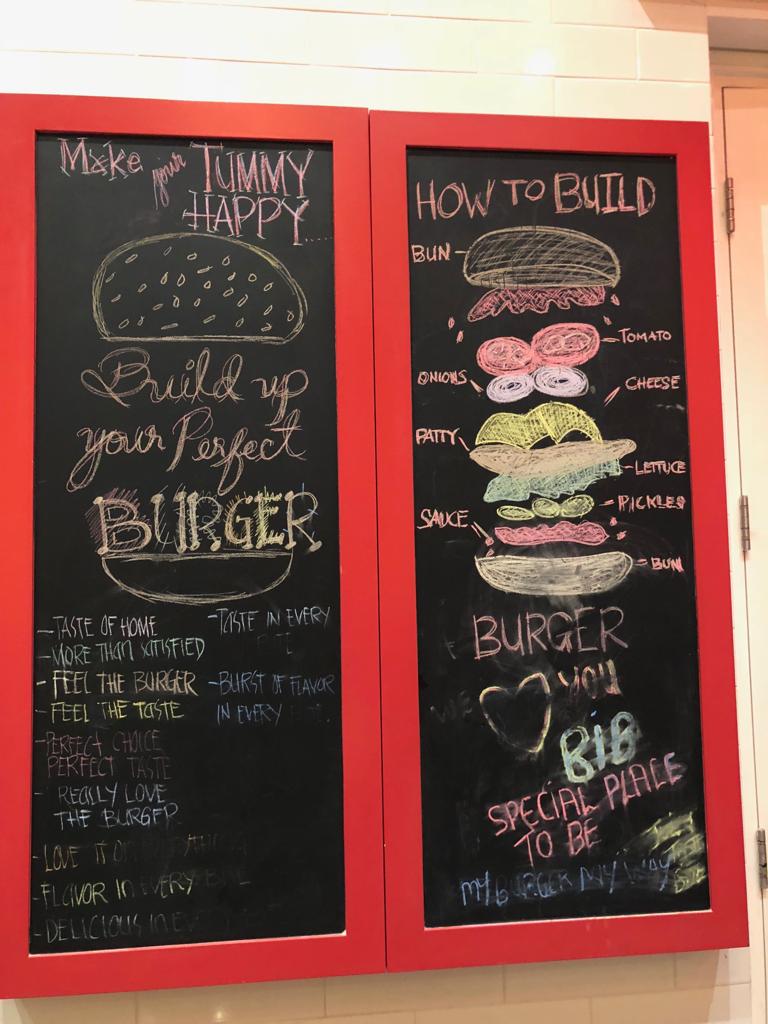 Make your TUMMY
HAPPY.....
Build up
your Perfect
BURGER
- TASTE OF HOME
- MORE THAN SATISFIED
- FEEL THE BURGER
- FEEL THE TASTE
- PERFECT CHOICE
PERFECT TASTE
- REALLY LOVE
THE BURGER
- LOVE IT OR
- FLAVOR IN EVERY BITE
- DELICIOUS IN EVERY
- TASTE IN EVERY
BITE
- BURST OF FLAVOR
IN EVERY BITE.
HOW TO BUILD
BUN
TOMATO
ONIONS
CHEESE
PATTY
LETTUCE
PICKLES
SAUCE
BUN
BURGER
WE YOU
BIB
SPECIAL PLACE
TO BE
MY BURGER MY WAY